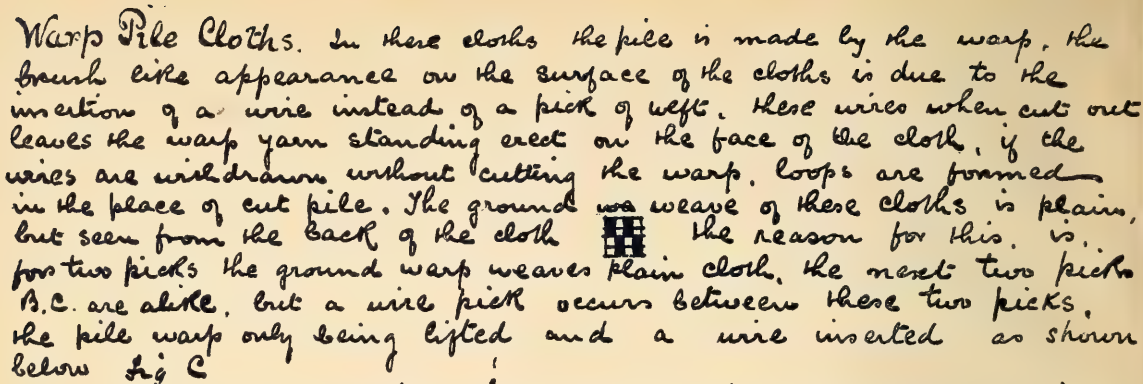 Warp Pile Cloths. In these cloths the pile is made by the warp, the
brush like appearance on the surface of the cloths is due to the
insertion of a wire instead of a pick of weft, these wires when cut out
leaves the warp yarn standing erect on the face of the cloth, if the
wires are withdrawn without cutting the warp, loops are formed
in the place of cut pile. The ground wa weave of these cloths is plain,
but seen from the back of the cloth the reason for this, is,
for two picks the ground warp weaves plain cloth, the next two picks
B.C. are alike, but a wire pick occurs between these two picks,
the pile warp only being lifted and a wire inserted as shown
below Fig C